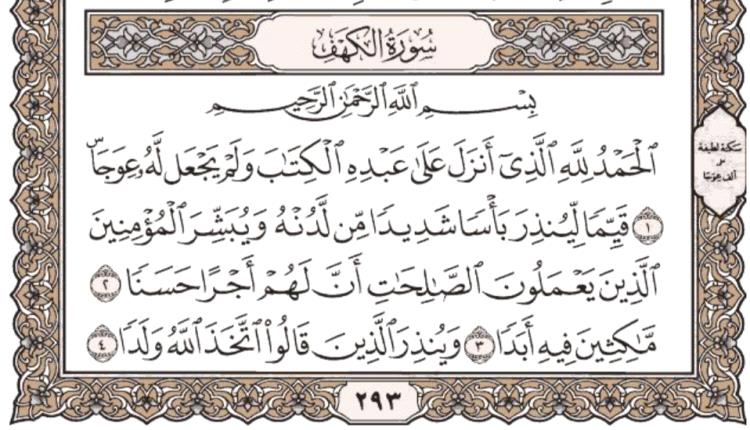 سُورَةُ الكَهْفِ
بِسْمِ ٱللَّهِ ٱلرَّحْمَٰنِ ٱلرَّحِيمِ
ٱلْحَمْدُ لِلَّهِ ٱلَّذِىٓ أَنزَلَ عَلَىٰ عَبْدِهِ ٱلْكِتَٰبَ وَلَمْ يَجْعَل لَّهُۥ عِوَجَاۜ
١ قَيِّمًا لِّيُنذِرَ بَأْسًا شَدِيدًا مِّن لَّدُنْهُ وَيُبَشِّرَ ٱلْمُؤْمِنِينَ
ٱلَّذِينَ يَعْمَلُونَ ٱلصَّٰلِحَٰتِ أَنَّ لَهُمْ أَجْرًا حَسَنًا ٢
مَّٰكِثِينَ فِيهِ أَبَدًا ٣ وَيُنذِرَ ٱلَّذِينَ قَالُوا۟ ٱتَّخَذَ ٱللَّهُ وَلَدًا ٤
سكتة لطيفة
على
ألف عِوَجَا
٢٩٣